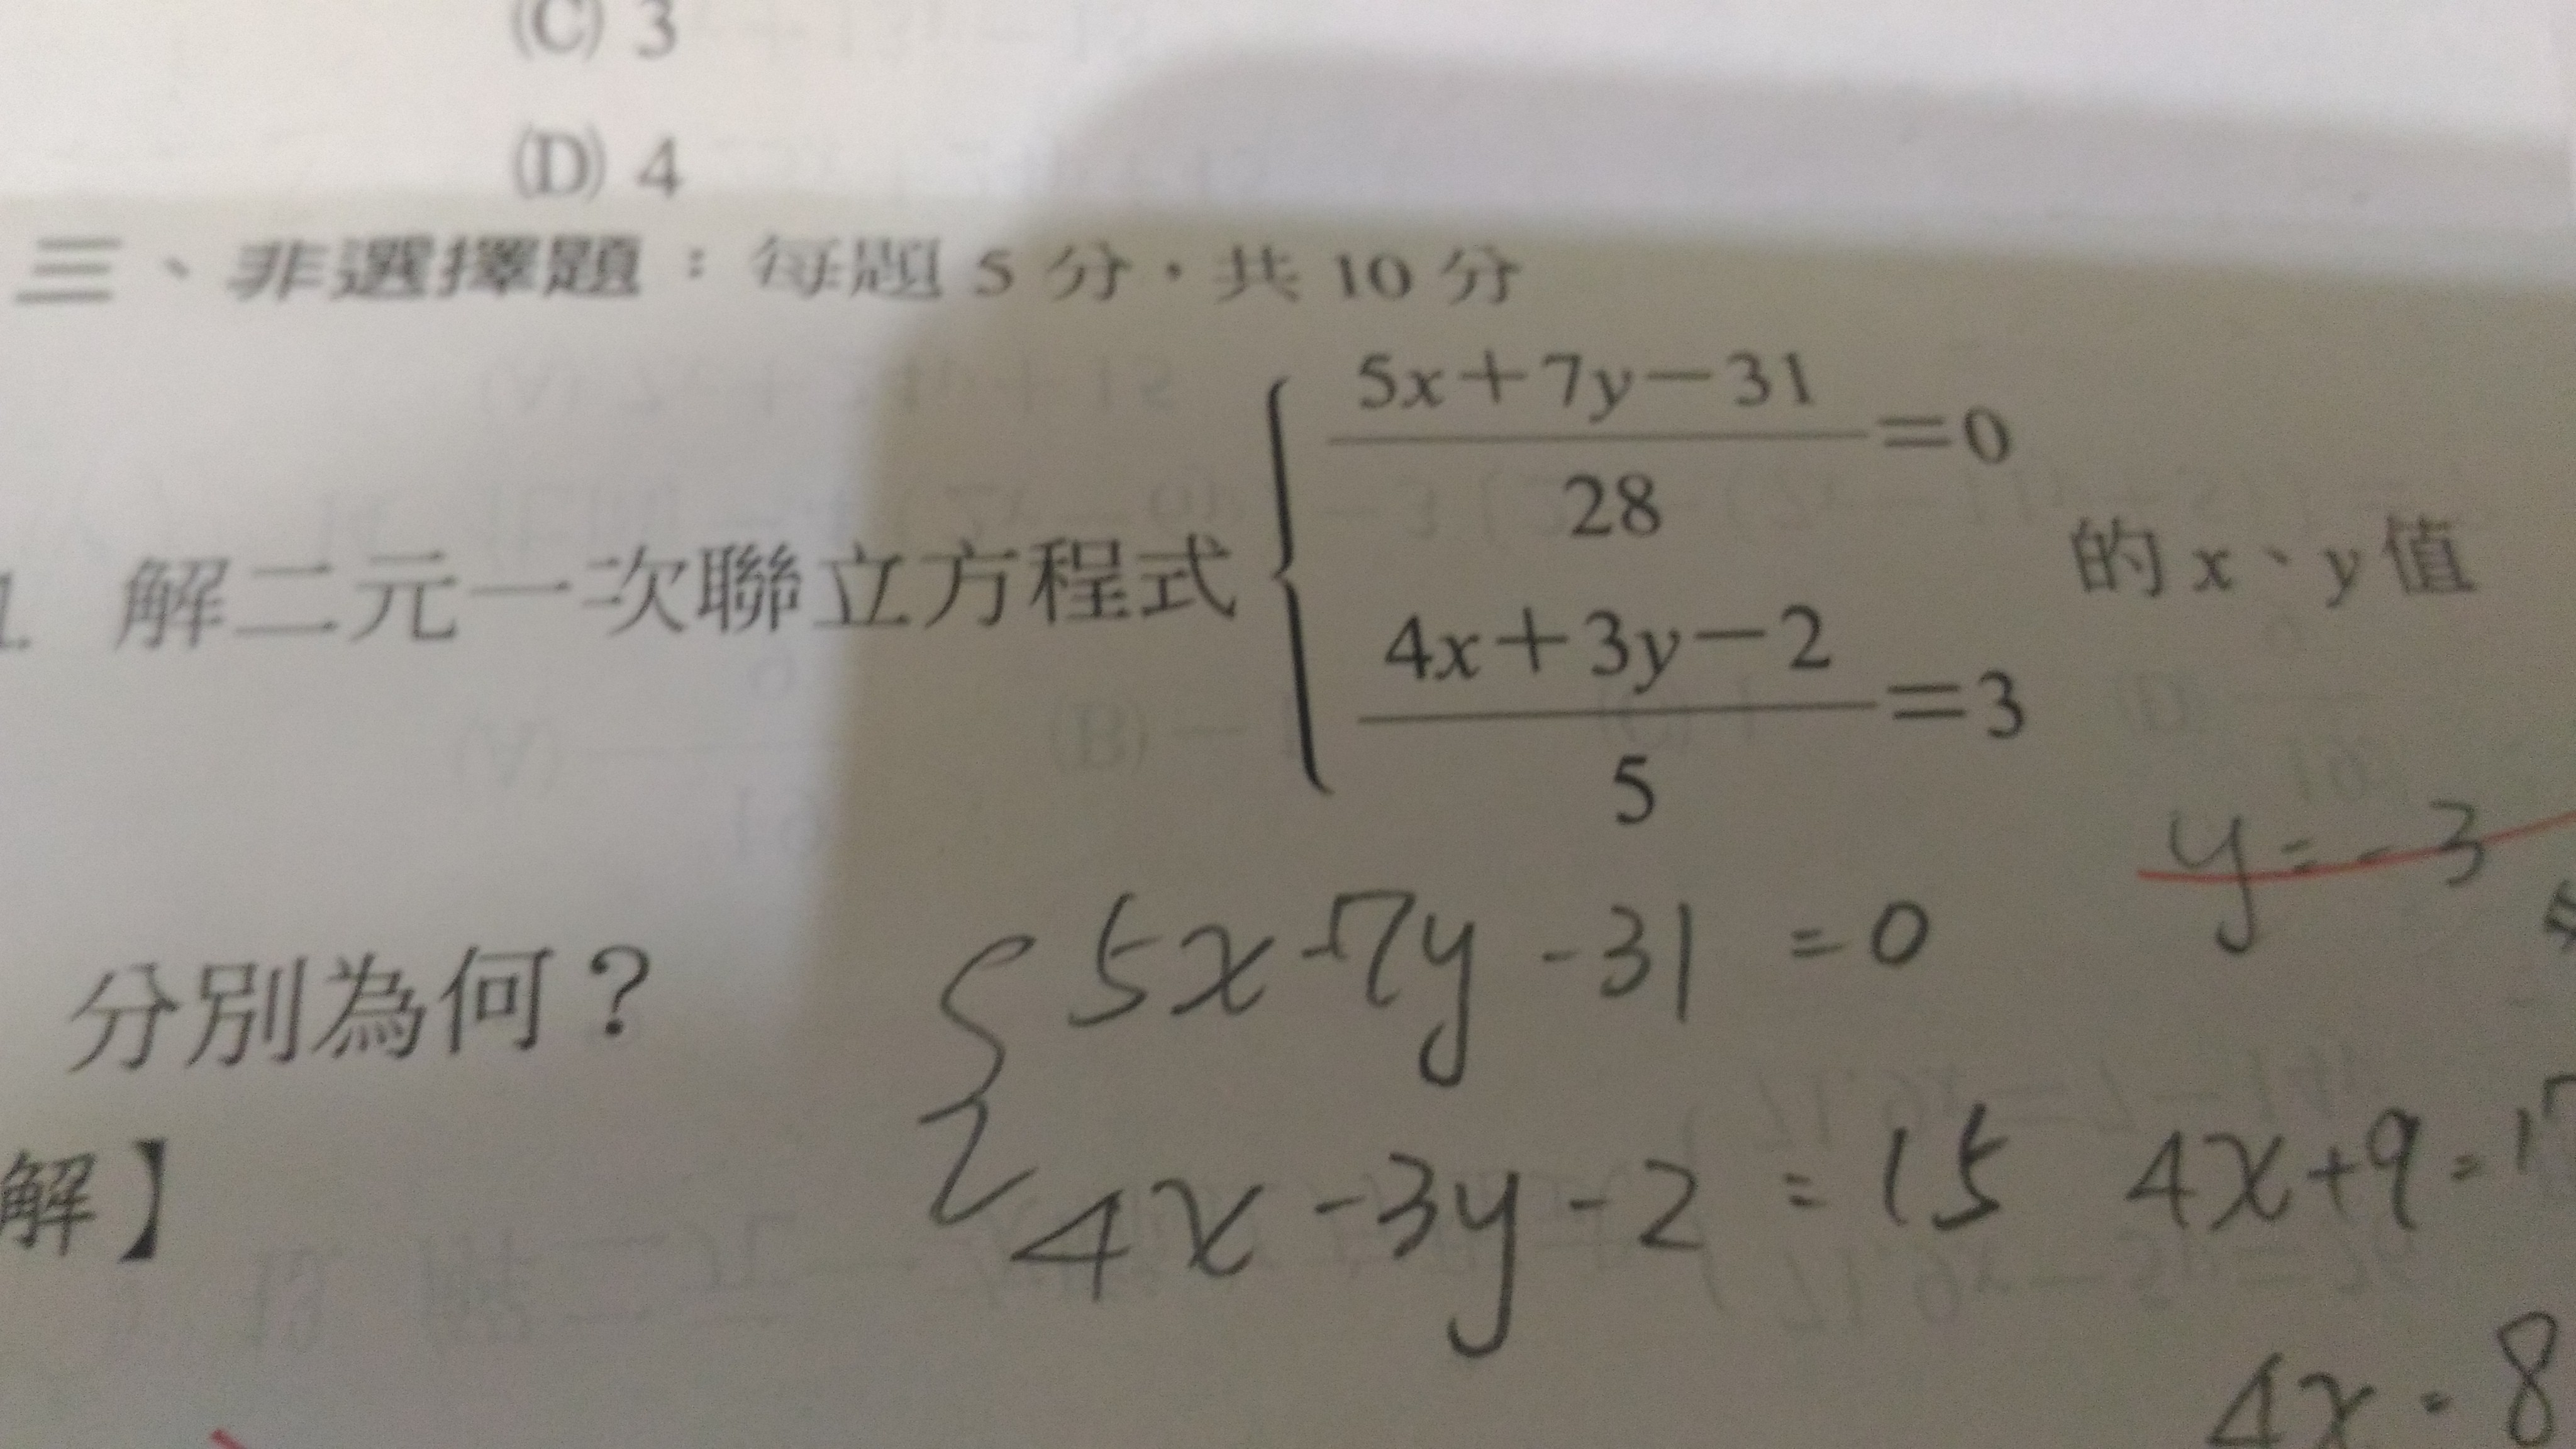 (C) 3
(D) 4
三、非選擇題：每題 5 分，共 10 分
1. 解二元一次聯立方程式 { (5x+7y−31)/28=0 的 x、y 值
(4x+3y−2)/5=3
y=-3
分別為何？
5x-7y-31=0
4x-3y-2=15
4x+9=17
解】
4x=8